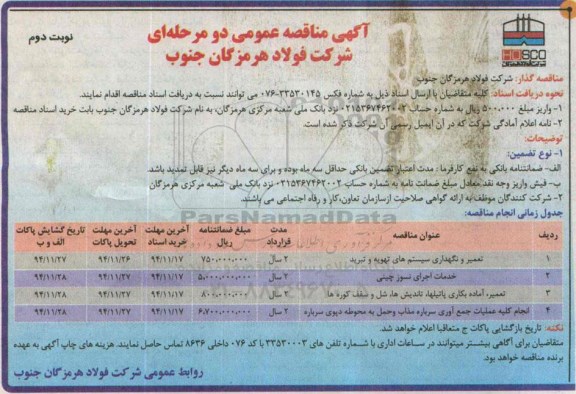 آگهی مناقصه عمومی دو مرحله‌ای
شرکت فولاد هرمزگان جنوب
نوبت دوم
HOSCO
مناقصه گذار: شرکت فولاد هرمزگان جنوب
نحوه دریافت اسناد: کلیه متقاضیان با ارسال اسناد ذیل به شماره فکس ۳۳۵۳۰۱۴۵-۰۷۶ می توانند نسبت به دریافت اسناد مناقصه اقدام نمایند.
۱- واریز مبلغ ۵۰۰،۰۰۰ ریال به شماره حساب ۰۲۱۵۳۶۷۴۶۲۰۰۲ نزد بانک ملی شعبه مرکزی هرمزگان، به نام شرکت فولاد هرمزگان جنوب بابت خرید اسناد مناقصه
۲- نامه اعلام آمادگی شرکت که در آن ایمیل رسمی آن شرکت ذکر شده است.
توضیحات:
۱- نوع تضمین:
الف- ضمانتنامه بانکی به نفع کارفرما : مدت اعتبار تضمین بانکی حداقل سه ماه بوده و برای سه ماه دیگر نیز قابل تمدید باشد.
ب- فیش واریز وجه نقد معادل مبلغ ضمانت نامه به شماره حساب ۰۲۱۵۳۶۷۴۶۲۰۰۲ نزد بانک ملی شعبه مرکزی هرمزگان
۲- شرکت کنندگان موظف به ارائه گواهی صلاحیت ازسازمان تعاون،کار و رفاه اجتماعی می باشند.
جدول زمانی انجام مناقصه:
ParsNamadData
ردیف عنوان مناقصه مدت قرارداد مبلغ ضمانتنامه ریال آخرین مهلت خرید اسناد آخرین مهلت تحویل پاکات تاریخ گشایش پاکات الف و ب
۱ تعمیر و نگهداری سیستم های تهویه و تبرید ۲ سال ۷۵۰،۰۰۰،۰۰۰ ۹۴/۱۱/۱۷ ۹۴/۱۱/۲۶ ۹۴/۱۱/۲۷
۲ خدمات اجرای نسوز چینی ۲ سال ۵،۰۰۰،۰۰۰،۰۰۰ ۹۴/۱۱/۱۷ ۹۴/۱۱/۲۷ ۹۴/۱۱/۲۸
۳ تعمیر، آماده بکاری پاتیلها، تاندیش ها، شل و سقف کوره ها ۲ سال ۸۰۰،۰۰۰،۰۰۰ ۹۴/۱۱/۱۷ ۹۴/۱۱/۲۷ ۹۴/۱۱/۲۸
۴ انجام کلیه عملیات جمع آوری سرباره مذاب وحمل به محوطه دپوی سرباره ۲ سال ۶،۷۰۰،۰۰۰،۰۰۰ ۹۴/۱۱/۱۷ ۹۴/۱۱/۲۷ ۹۴/۱۱/۲۸
نکته: تاریخ بازگشایی پاکات ج متعاقبا اعلام خواهد شد.
متقاضیان برای آگاهی بیشتر میتوانند در ساعات اداری با شماره تلفن های ۳۳۵۳۰۰۰۳ با کد ۰۷۶ داخلی ۸۶۳۶ تماس حاصل نمایند. هزینه های چاپ آگهی به عهده
برنده مناقصه خواهد بود.
روابط عمومی شرکت فولاد هرمزگان جنوب